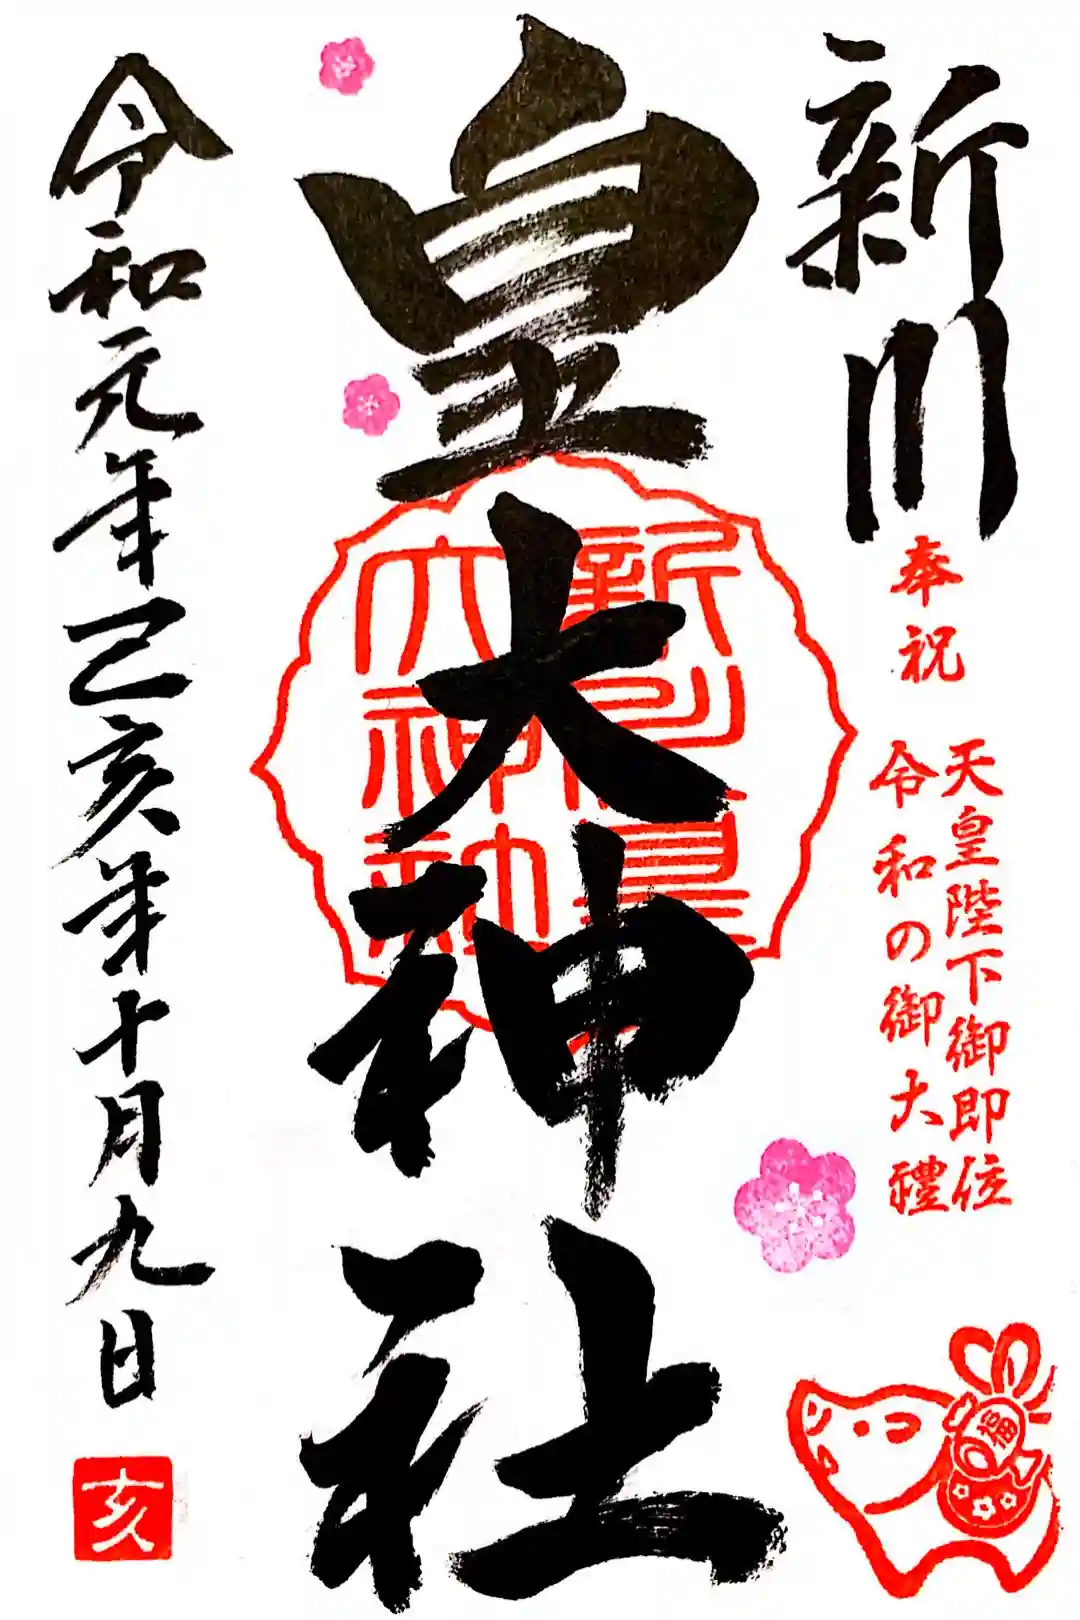 新川
奉祝
天皇陛下御即位
令和の御大禮
皇大神社
新川皇
大神社
福
令和元年己亥年十月九日
亥